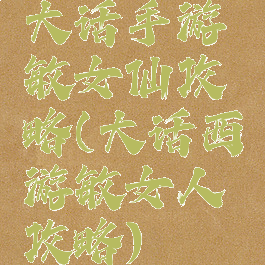 大话手游
敏女仙攻
略(大话西
游敏女人
攻略)